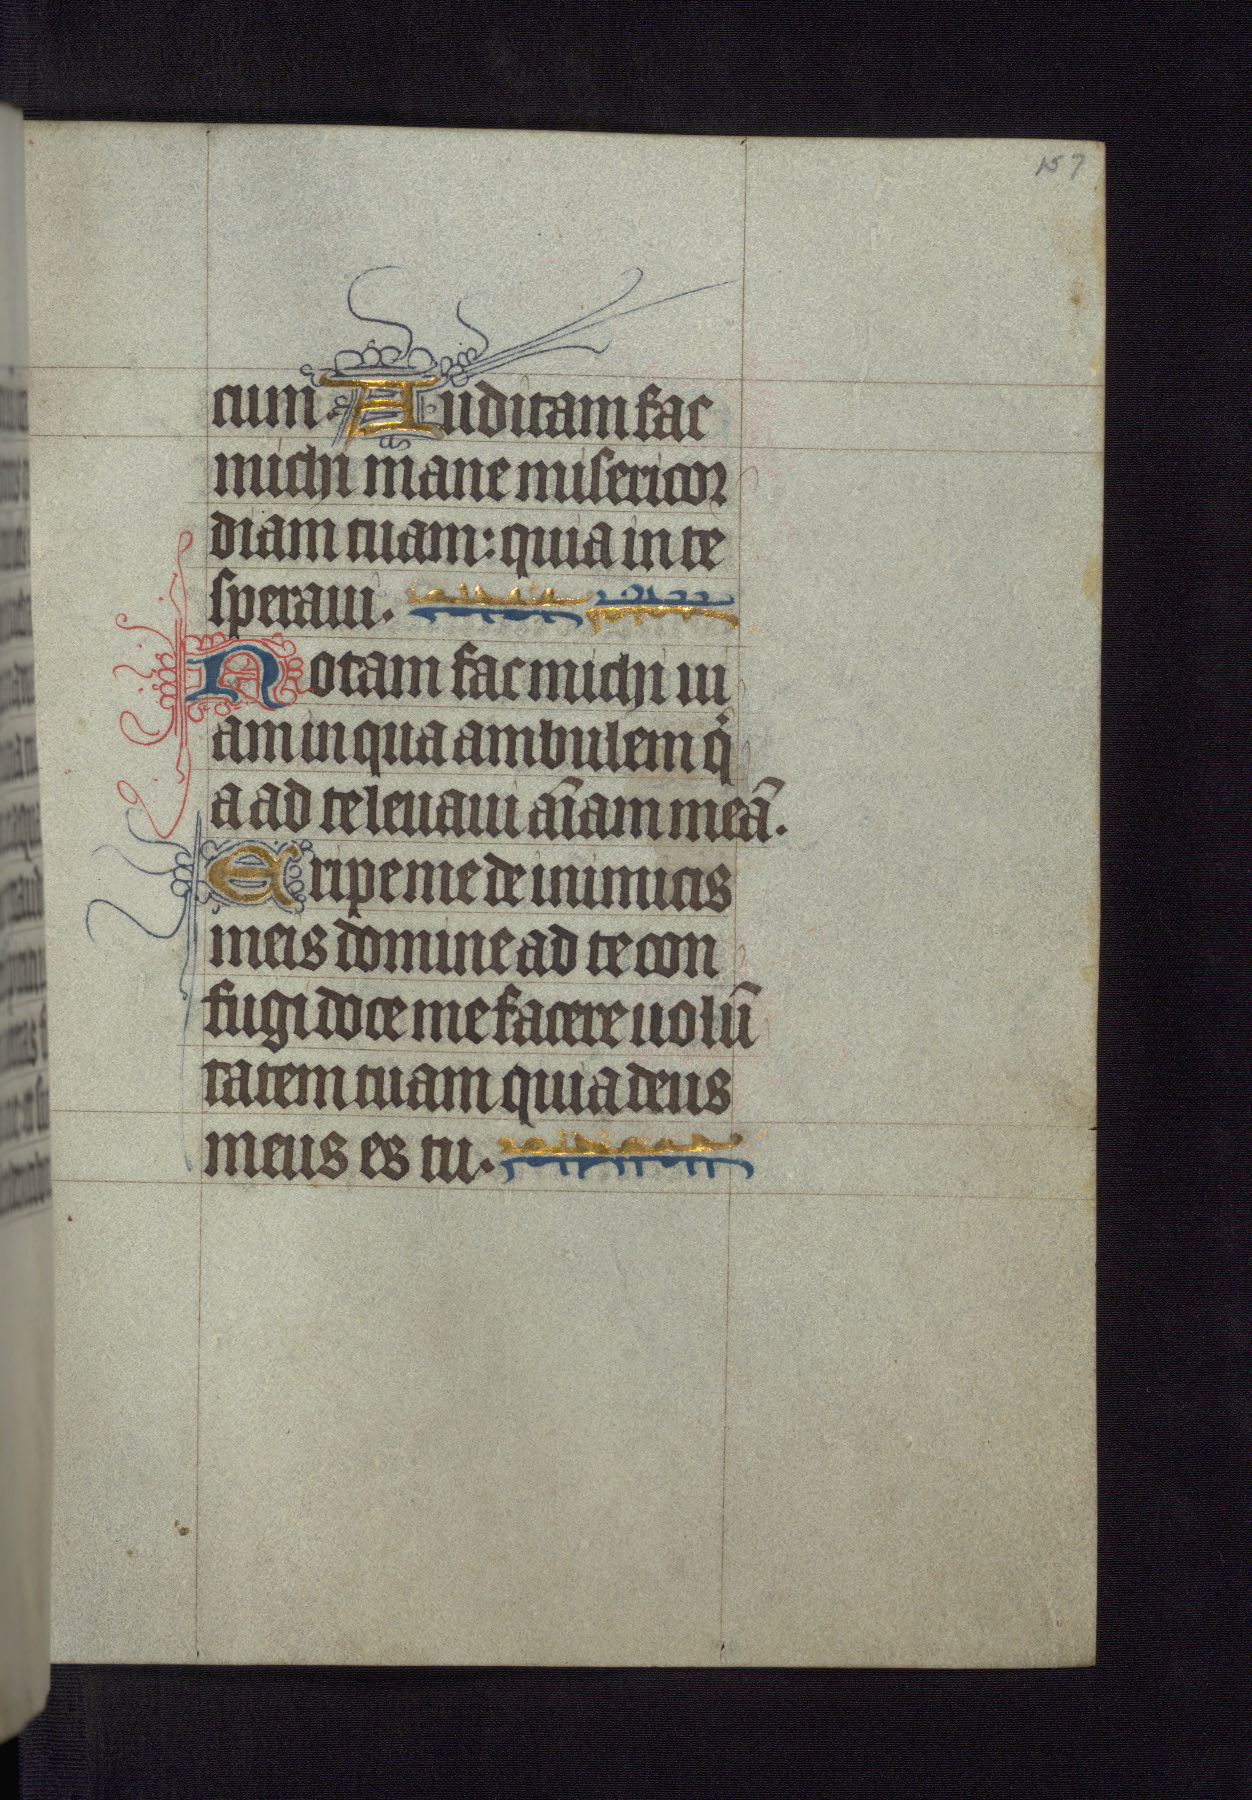 157
cum. Auditam fac
michi mane misericor
diam tuam: quia in te
speraui.
Notam fac michi ui
am in qua ambulem qͥ
a ad te leuaui aīam meā.
Eripe me de inimicis
meis domine ad te con
fugi doce me facere uolū
tatem tuam quia deus
meus es tu.